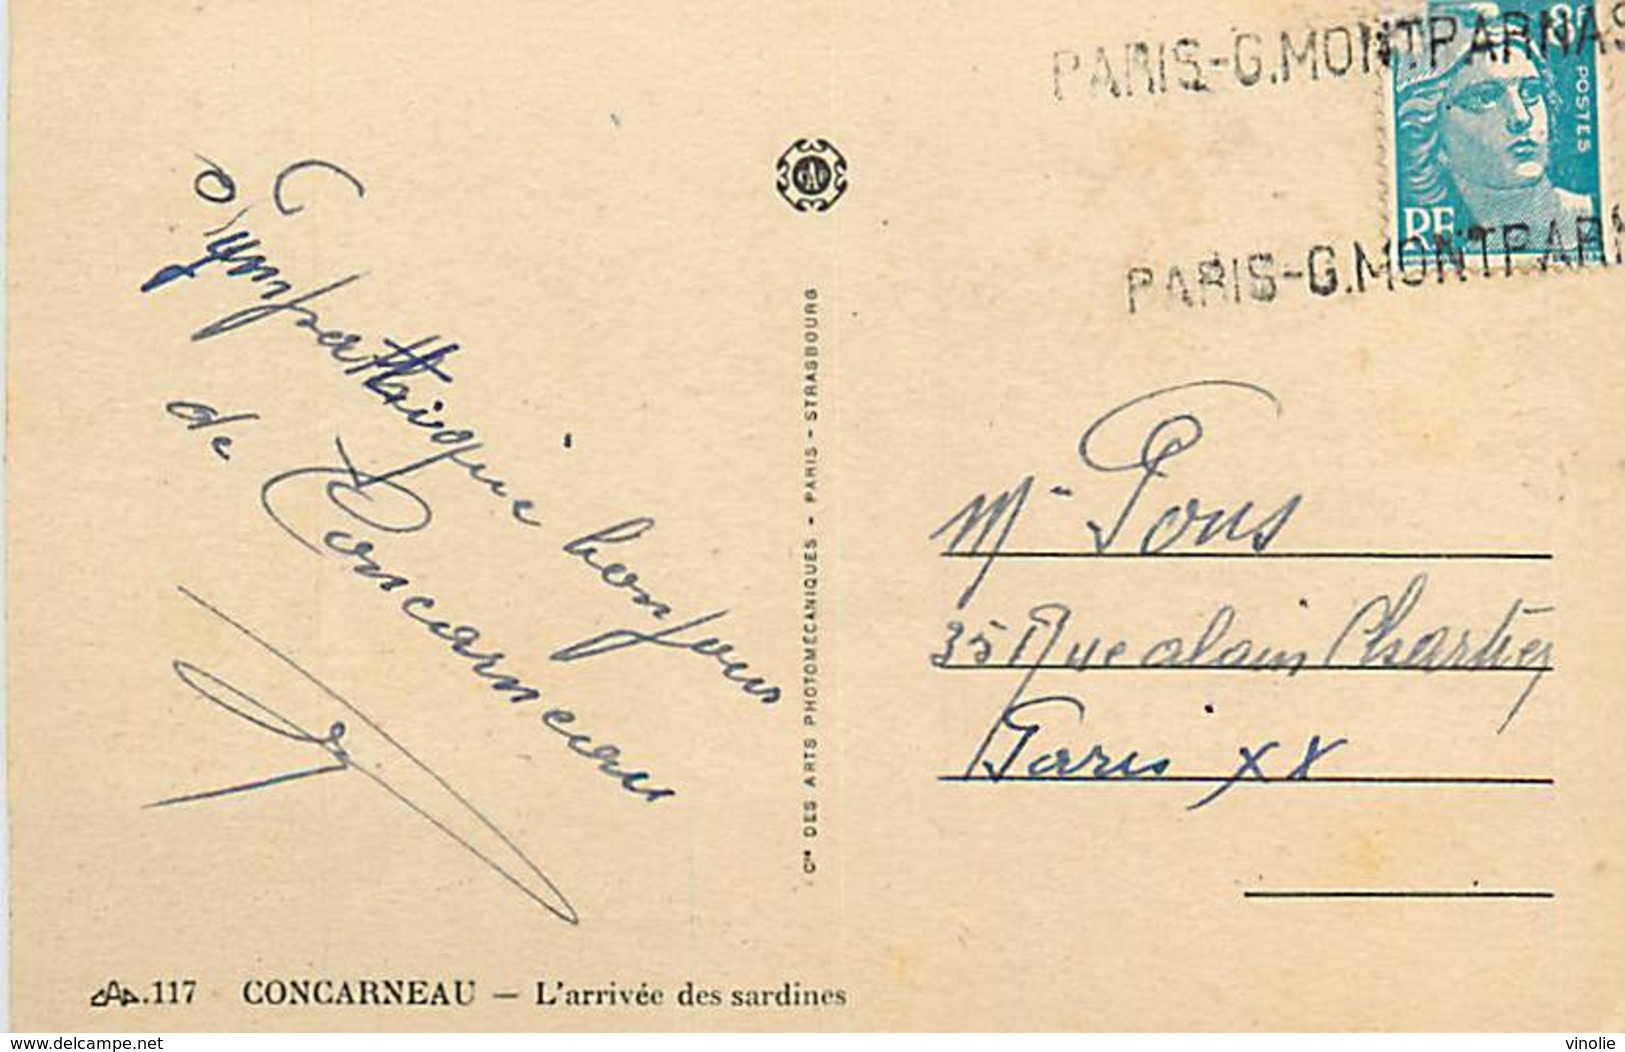 PARIS-G.MONTPARNAS
8F
POSTES
RF
PARIS-G.MONTPARN
Sympathique bonjour
de Concarneau
Cie DES ARTS PHOTOMÉCANIQUES - PARIS - STRASBOURG
Mr Pons
35 Rue alain Chartier
Paris XX
CAP.117 CONCARNEAU — L'arrivée des sardines
www.delcampe.net
vinolie